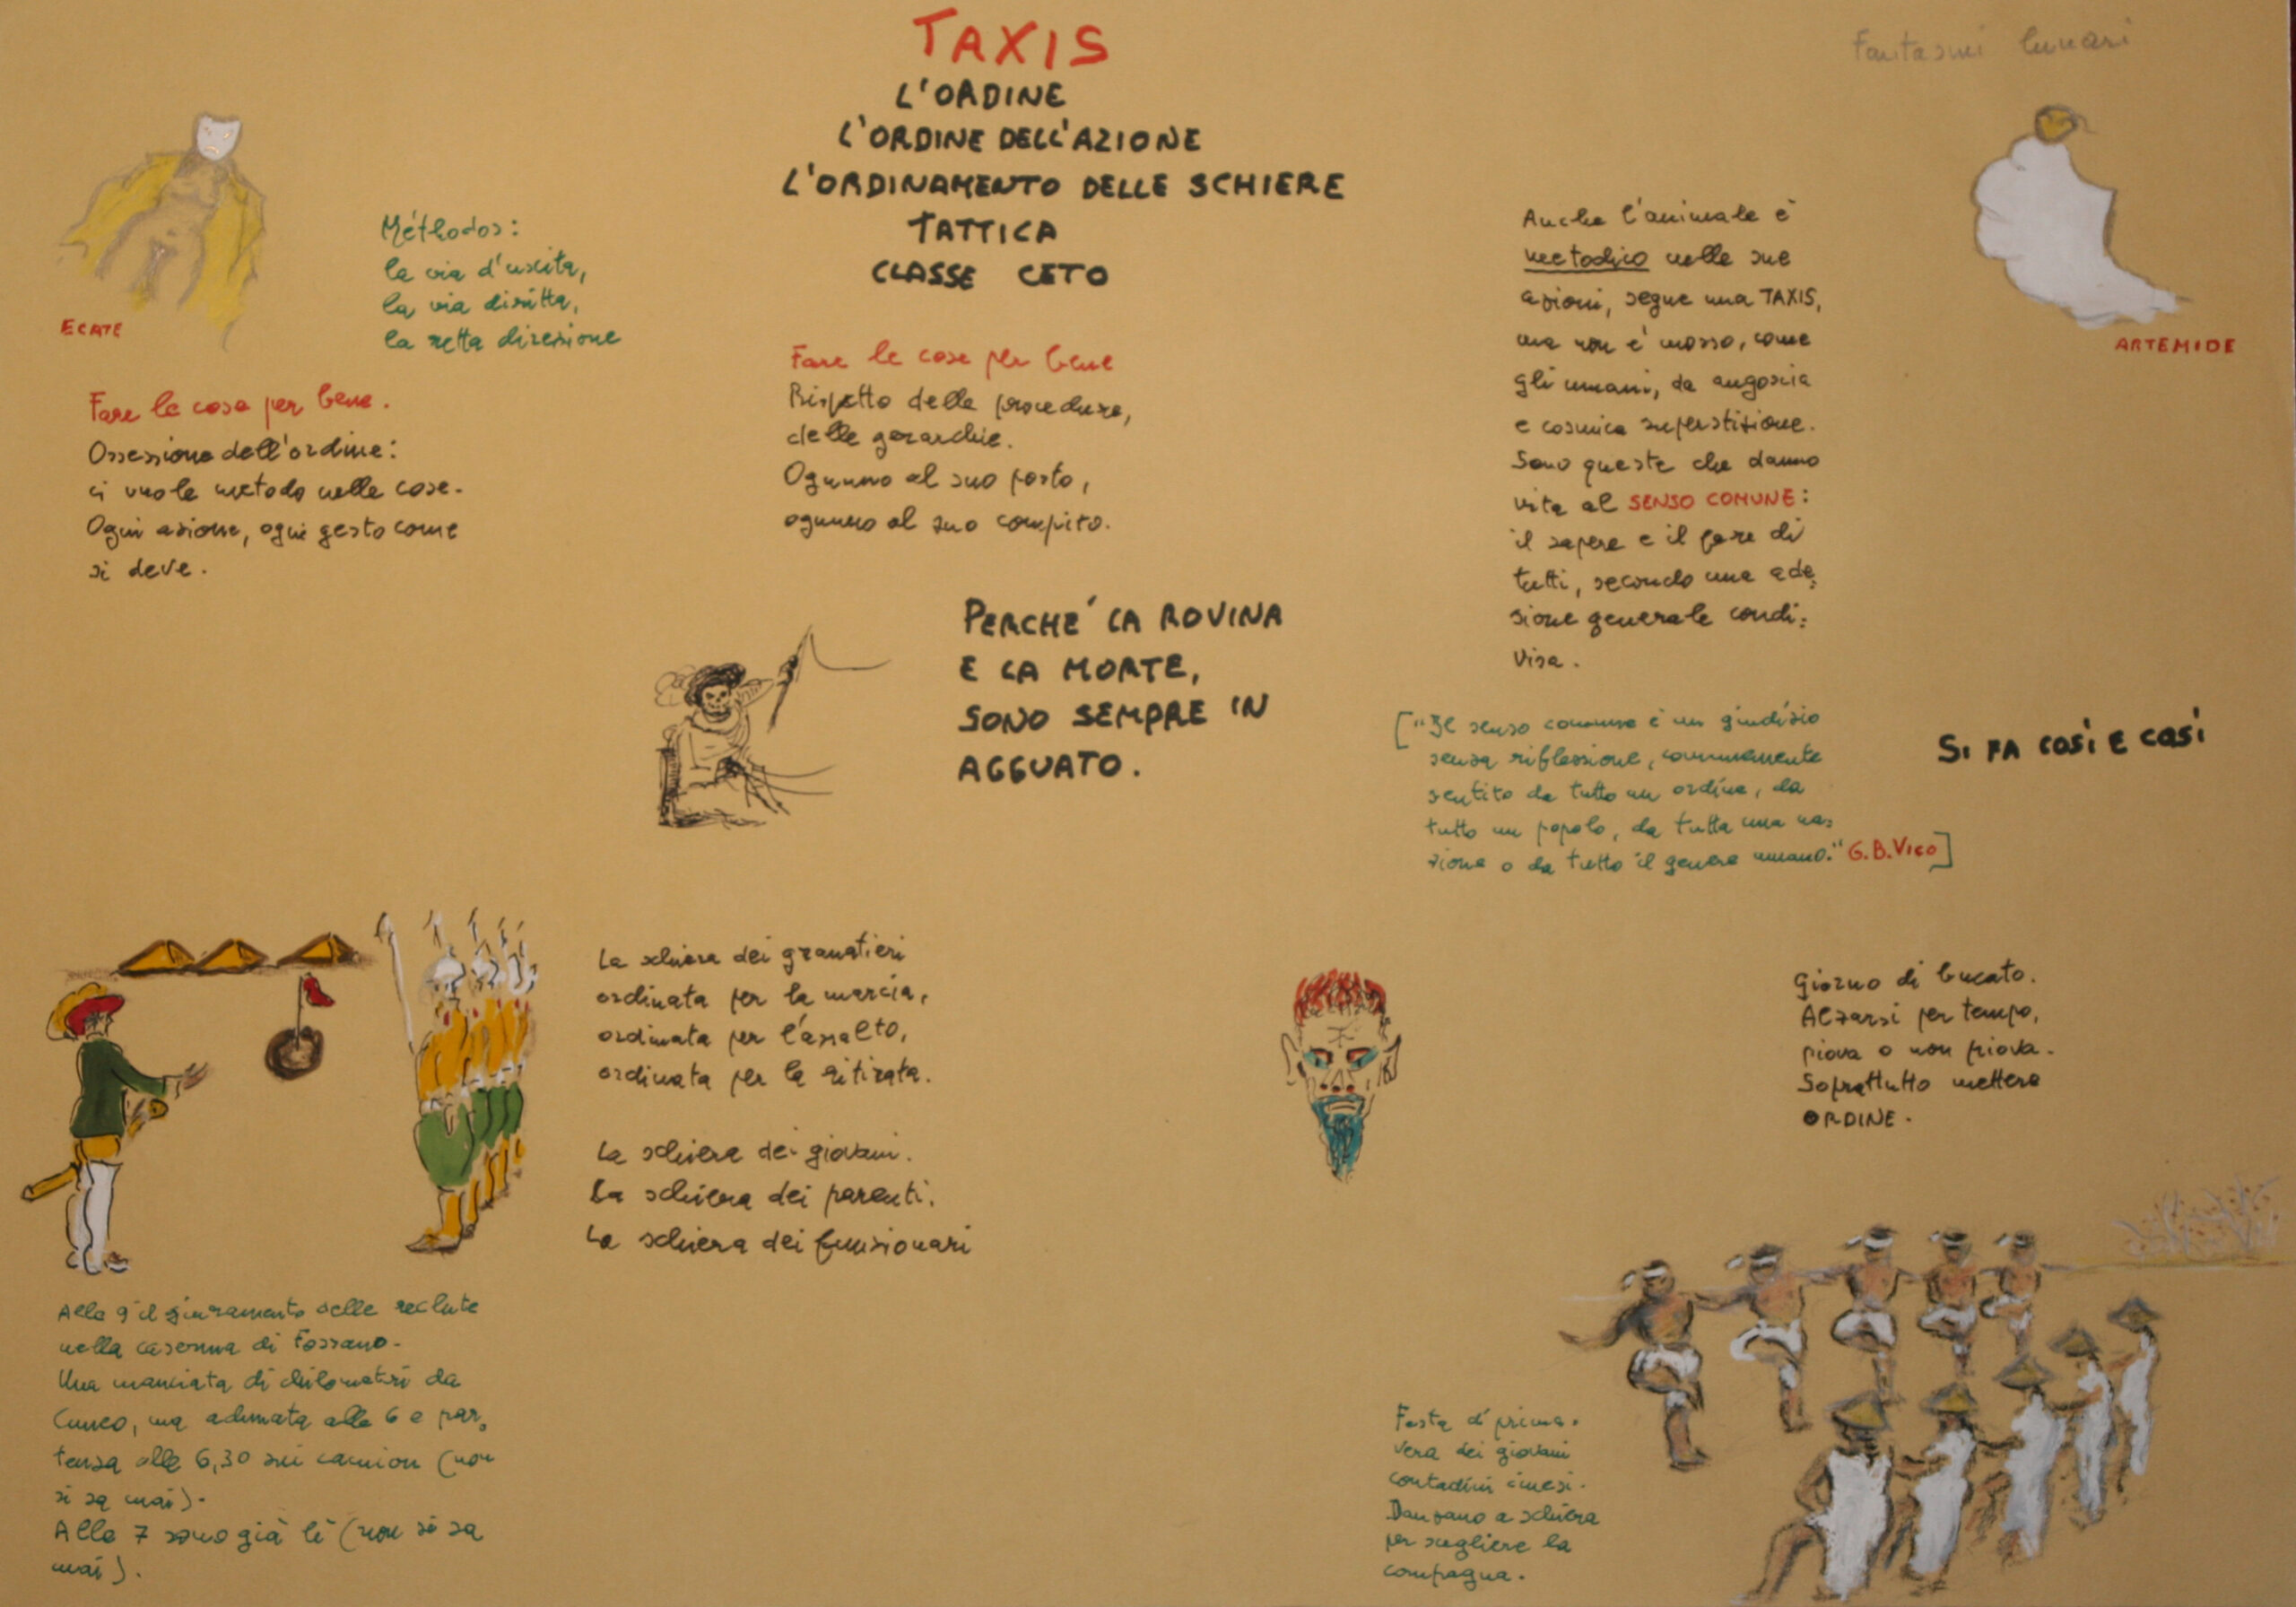 TAXIS
L'ORDINE
L'ORDINE DELL'AZIONE
L'ORDINAMENTO DELLE SCHIERE
TATTICA
CLASSE CETO
Fantasmi lunari
ECATE
Méthodos:
la via d'uscita,
la via diritta,
la retta direzione
Fare le cose per bene.
Ossessione dell'ordine:
ci vuole metodo nelle cose.
Ogni azione, ogni gesto come
si deve.
Fare le cose per bene
Rispetto delle procedure,
delle gerarchie.
Ognuno al suo posto,
ognuno al suo compito.
Anche l'animale è
metodico nelle sue
azioni, segue una TAXIS,
ma non è mosso, come
gli umani, da angoscia
e cosmica superstizione.
Sono queste che danno
vita al SENSO COMUNE:
il sapere e il fare di
tutti, secondo una ade=
sione generale condi=
visa.
ARTEMIDE
PERCHE' LA ROVINA
E LA MORTE,
SONO SEMPRE IN
AGGUATO.
["Il senso comune è un giudizio
senza riflessione, comunemente
sentito da tutto un ordine, da
tutto un popolo, da tutta una na=
zione o da tutto il genere umano." G.B.Vico]
SI FA COSÌ E COSÌ
La schiera dei granatieri
ordinata per la marcia,
ordinata per l'assalto,
ordinata per la ritirata.
La schiera dei giovani.
La schiera dei parenti.
La schiera dei funzionari
Giorno di bucato.
Alzarsi per tempo,
piova o non piova.
Soprattutto mettere
ORDINE.
Alle 9 il giuramento delle reclute
nella caserma di Fossano.
Una manciata di chilometri da
Cuneo, ma adunata alle 6 e par=
tenza alle 6,30 sui camion (non
si sa mai).
Alle 7 sono già lì (non si sa
mai).
Festa di prima=
vera dei giovani
contadini cinesi.
Danzano a schiera
per scegliere la
compagna.